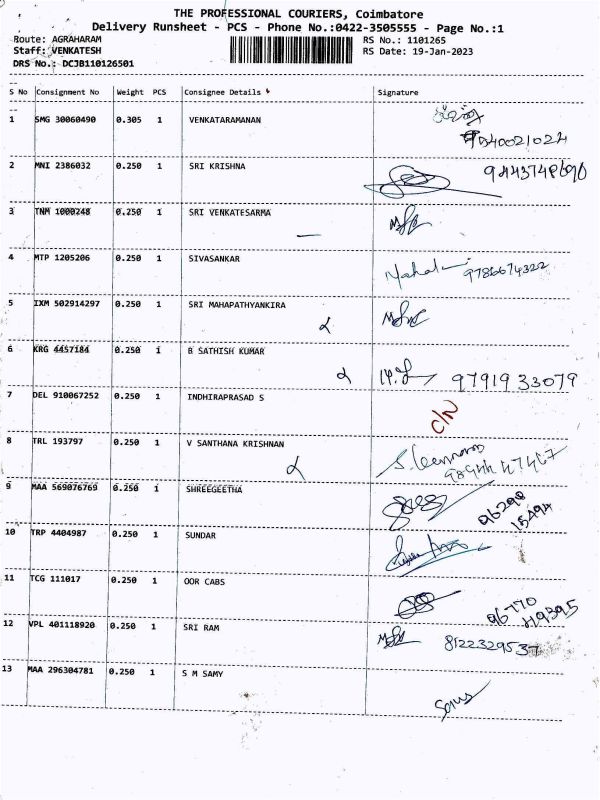 THE PROFESSIONAL COURIERS, Coimbatore
Delivery Runsheet - PCS - Phone No.:0422-3505555 - Page No.:1
Route: AGRAHARAM RS No.: 1101265
Staff: VENKATESH RS Date: 19-Jan-2023
DRS No.: DCJB110126501
S No Consignment No Weight PCS Consignee Details Signature
1 SMG 30060490 0.305 1 VENKATARAMANAN
2 MNI 2386032 0.250 1 SRI KRISHNA
3 TNM 1000248 0.250 1 SRI VENKATESARMA
4 MTP 1205206 0.250 1 SIVASANKAR 9786674322
5 IXM 502914297 0.250 1 SRI MAHAPATHYANKIRA
6 KRG 4457184 0.250 1 B SATHISH KUMAR 9791933079
7 DEL 910067252 0.250 1 INDHIRAPRASAD S C/N
8 TRL 193797 0.250 1 V SANTHANA KRISHNAN
9 MAA 569076769 0.250 1 SHREEGEETHA 96290
15494
10 TRP 4404987 0.250 1 SUNDAR
11 TCG 111017 0.250 1 OOR CABS 96770
49395
12 VPL 401118920 0.250 1 SRI RAM 8122329537
13 MAA 296304781 0.250 1 S M SAMY